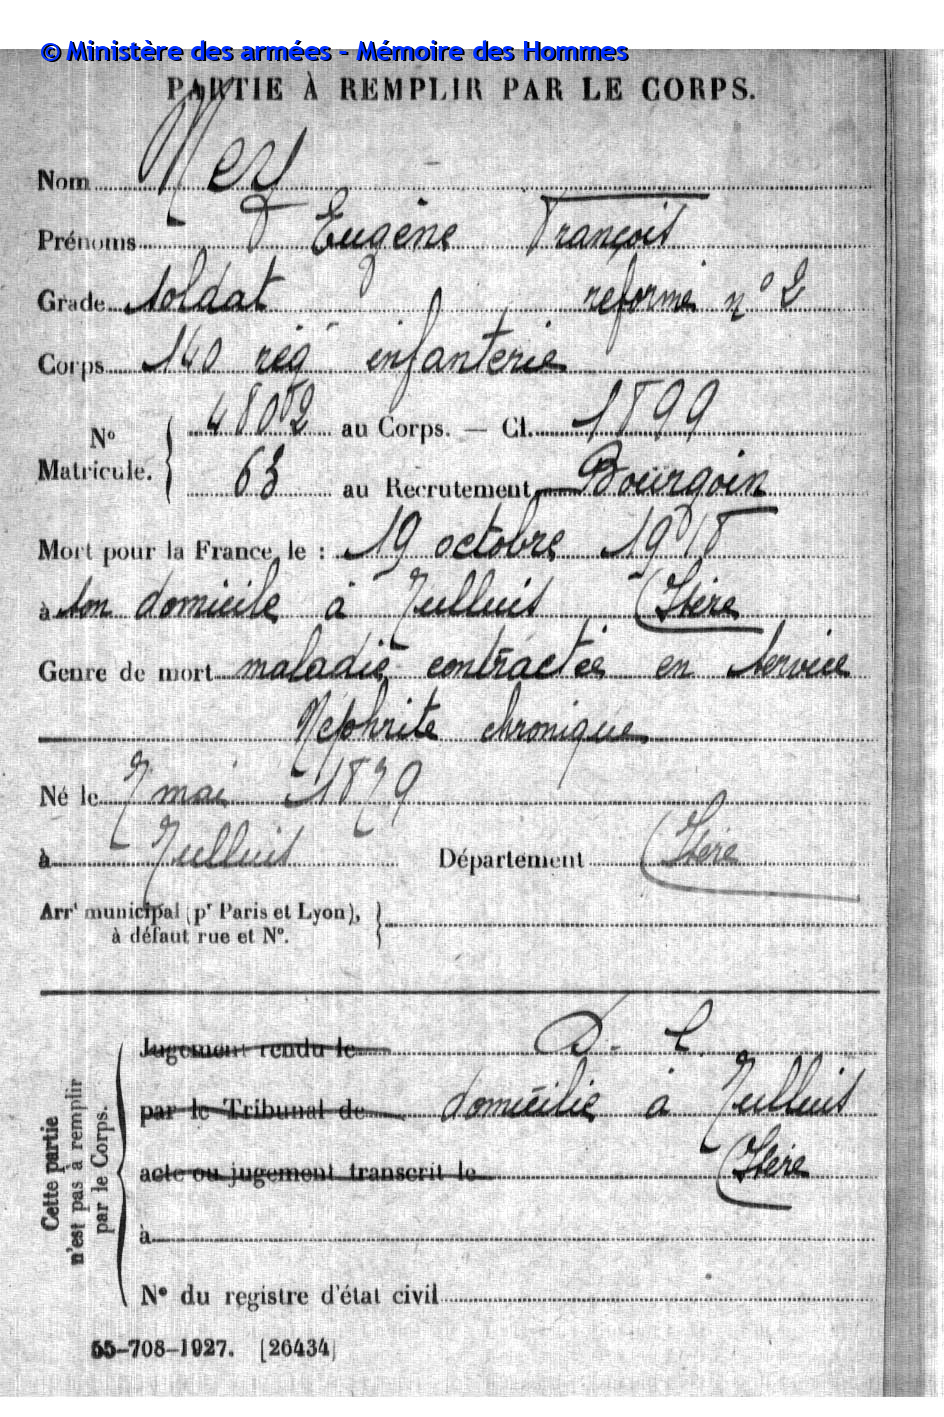 © Ministère des armées - Mémoire des Hommes
PARTIE À REMPLIR PAR LE CORPS.
Nom Mey
Prénoms Eugène François
Grade soldat réformé n° 2
Corps 140 rég infanterie
N° Matricule. { 4802 au Corps. — Cl. 1899
63 au Recrutement Bourgoin
Mort pour la France le : 19 octobre 1918
à son domicile à (Isère
Genre de mort maladie contractée en service
Néphrite chronique
Né le 7 mai 1879
à Département (Isère
Arrt municipal (pr Paris et Lyon), }
à défaut rue et N°.
Cette partie n'est pas à remplir par le Corps.
Jugement rendu le D. C.
par le Tribunal de domicilié à
acte ou jugement transcrit le (Isère
à
N° du registre d'état civil
55-708-1927. [26434]